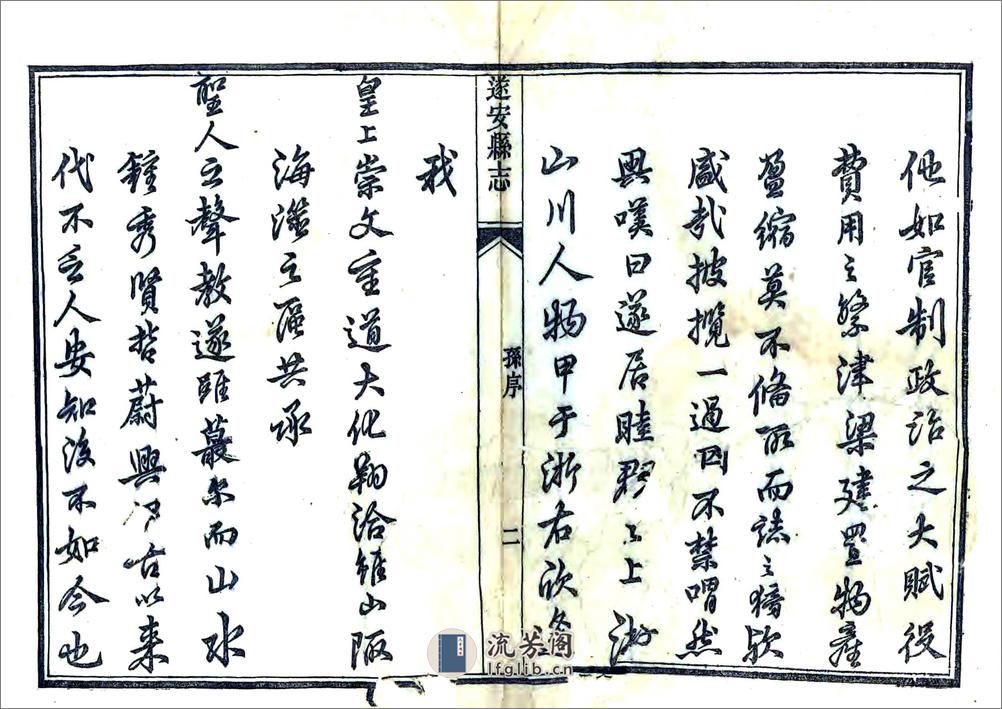 他如官制政治之大賦役
費用之繁津梁建置物產
盈縮莫不備所而誌之猗歟
盛哉披攬一過因不禁喟然
興嘆曰遂居睦郡之上游
山川人物甲于浙右欣
遂安縣志
孫序
二
我
皇上崇文重道大化翔洽雖山陬
海澨之區共承
聖人之聲教遂雖蕞爾而山水
鍾秀賢哲蔚興乃古以來
代不乏人安知後不如今也
流芳阁
lfglib.cn